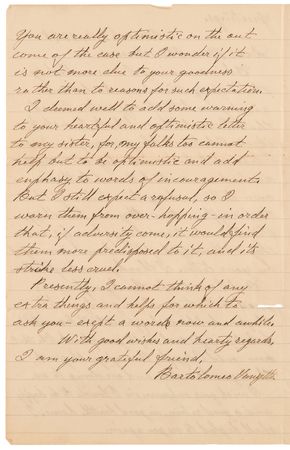 You are really optimistic on the out
come of the case but I wonder if it
is not more due to your goodness
rather than to reasons for such expectation.
I deemed well to add some warning
to your heartful and optimistic letter
to my sister, for, my folks too cannot
help but to be optimistic and add
enphasy to words of incouragement.
But I still expect a refusal, so I
warn them from over-hopping - in order
that, if adversity come, it would find
them more predisposed to it, and its
strike less cruel.
Presently, I cannot think of any
extra things and helps for which to
ask you - exept a words now and awhile.
With good wishes and hearty regards,
I am your grateful friend,
Bartolomeo Vanzetti